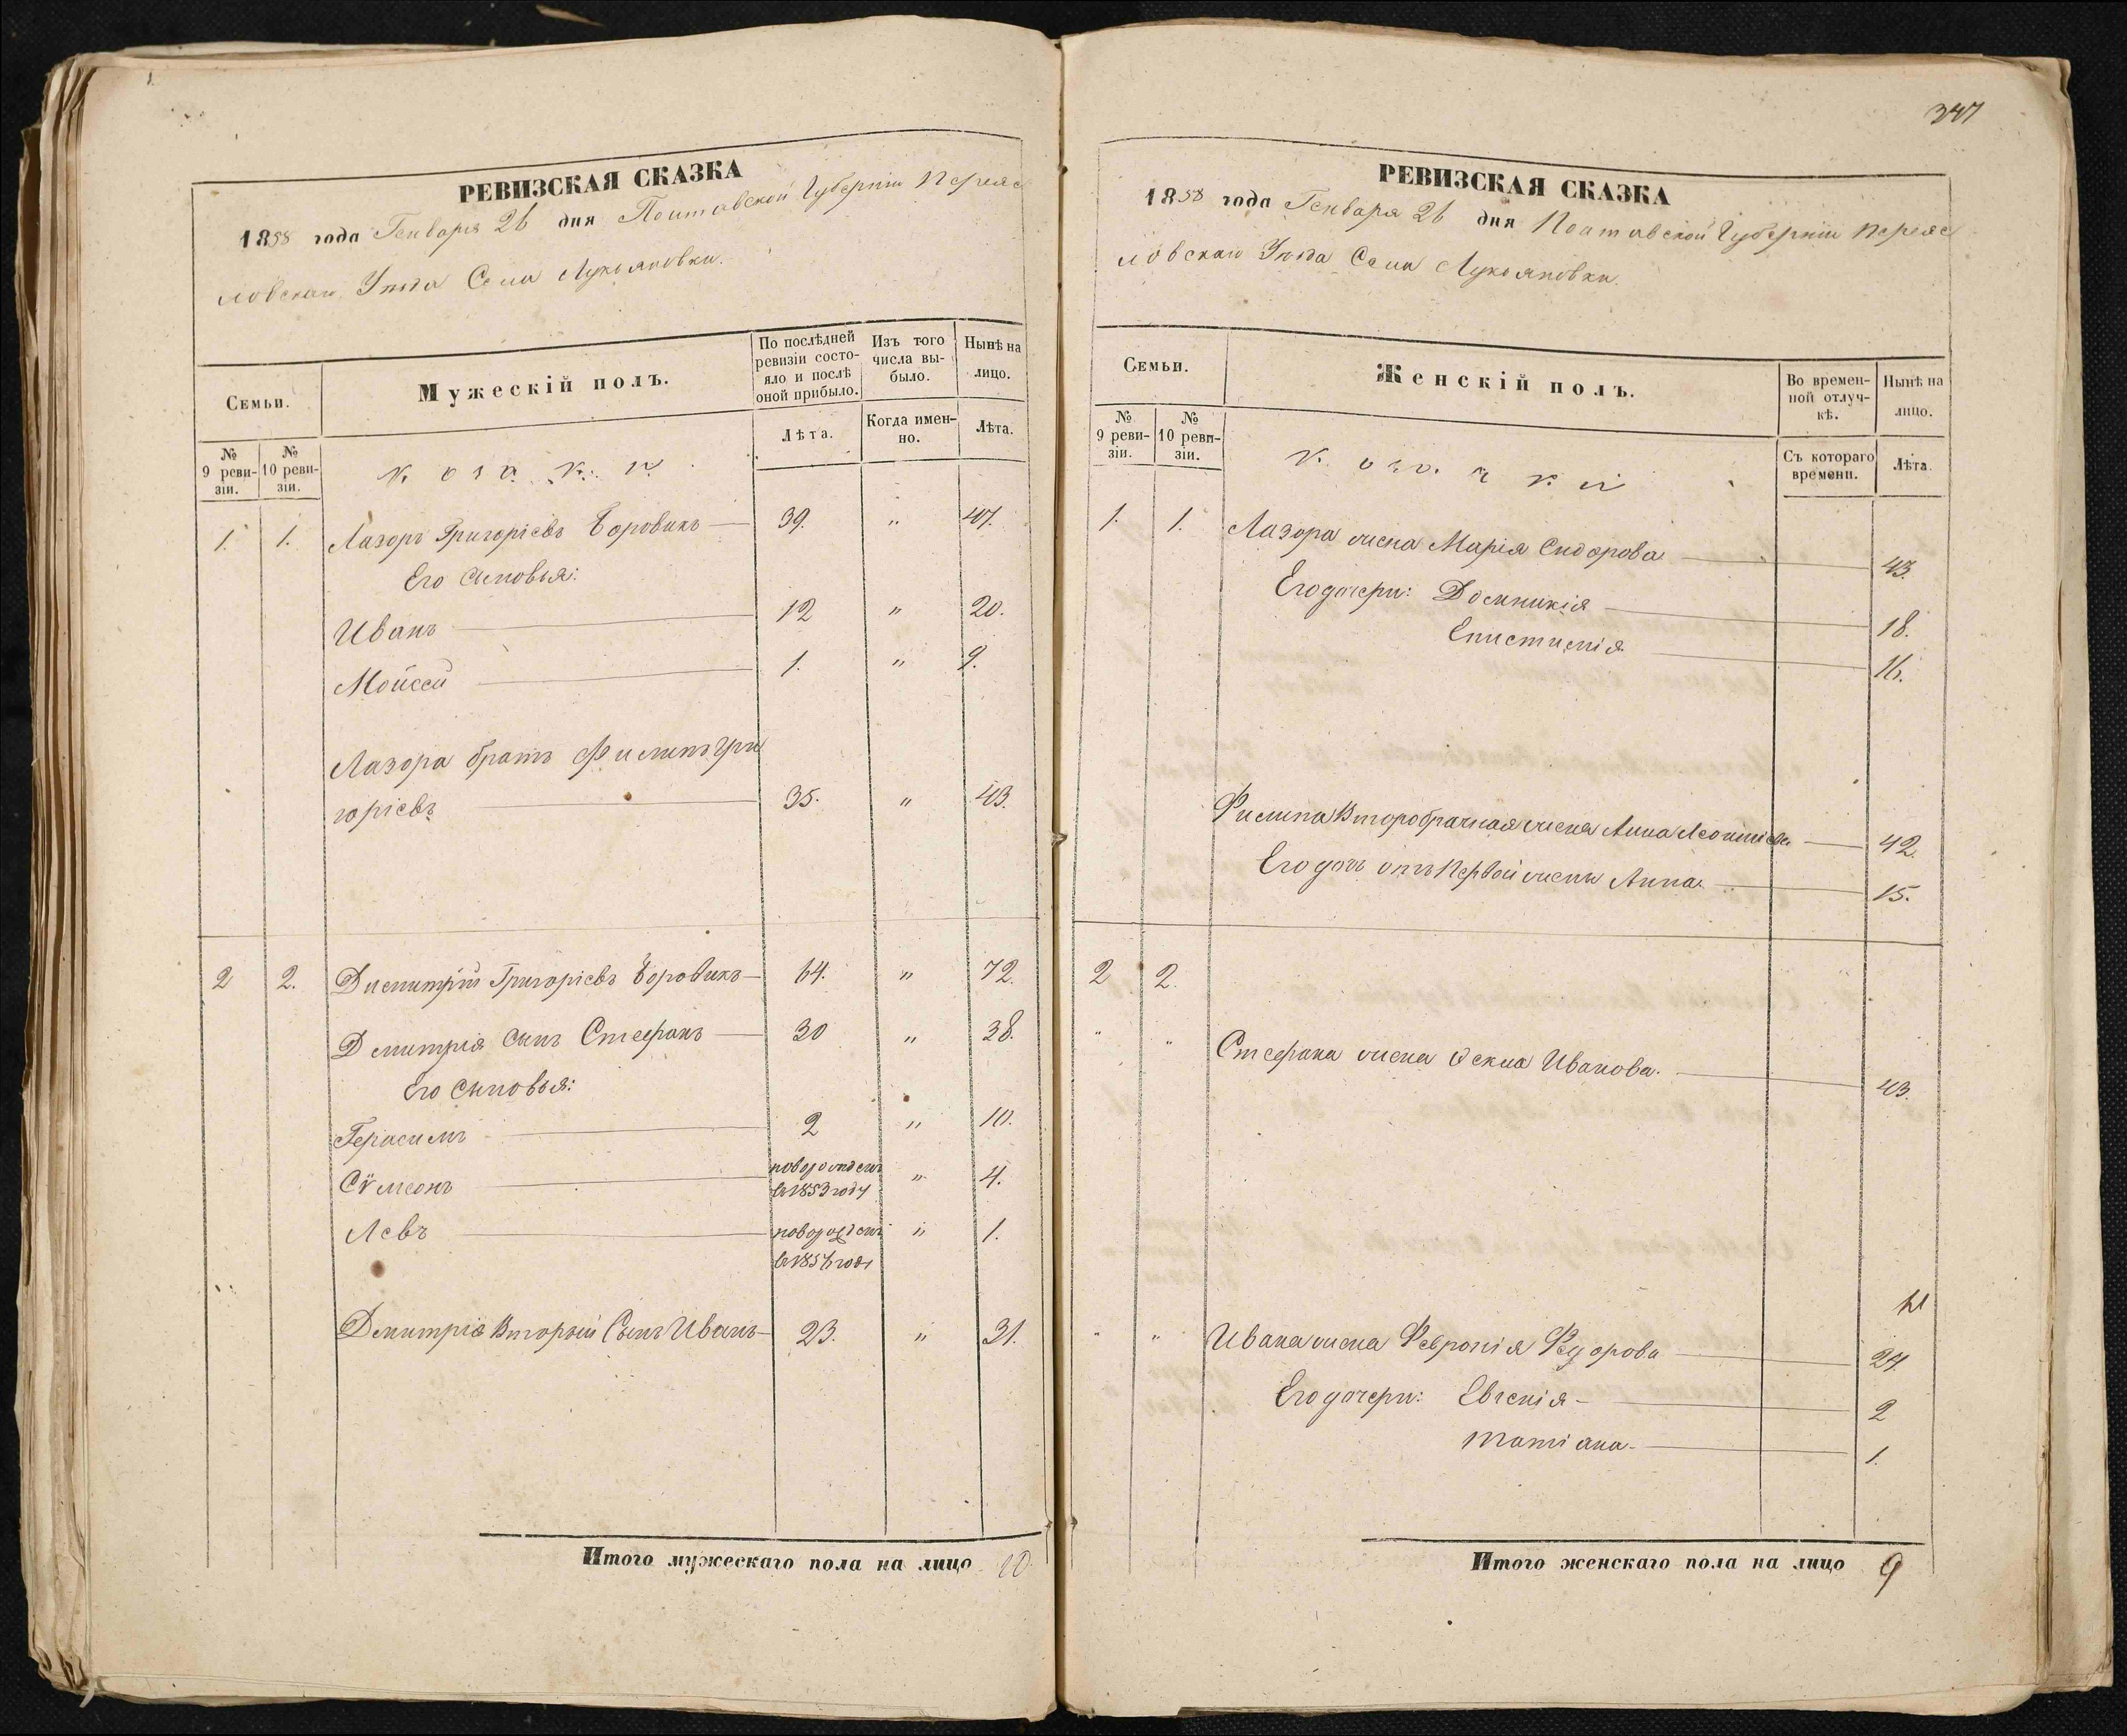 РЕВИЗСКАЯ СКАЗКА
1858 года Генваря 26 дня Полтавской Губерніи Переяс
ловскаго Уѣзда Села Лукьяновки.
Семьи.
Мужескій полъ.
По послѣдней ревизіи состояло и послѣ оной прибыло.
Изъ того числа выбыло.
Нынѣ на лицо.
№ 9 ревизіи.
№ 10 ревизіи.
Козаки
Лѣта.
Когда именно.
Лѣта.
1. 1. Лазоръ Григоріевъ Боровикъ 39. " 47.
Его сыновья:
Иванъ 12 " 20.
Мойсей 1. " 9.
Лазора братъ Филипъ Гри
горіевъ 35. " 43.
2 2. Димитрій Григоріевъ Боровикъ 64. " 72.
Димитрія сынъ Стефанъ 30 " 38.
Его сыновья:
Герасимъ 2 " 10.
Сѵмеонъ новорожденъ в 1853 году " 4.
Левъ новорожденъ в 1856 году " 1.
Дмитрія Вторый Сынъ Иванъ 23. " 31.
Итого мужескаго пола на лицо 10
347
РЕВИЗСКАЯ СКАЗКА
1858 года Генваря 26 дня Полтавской Губерніи Переяс
ловскаго Уѣзда Села Лукьяновки.
Семьи.
Женскій полъ.
Во временной отлучкѣ.
Нынѣ на лицо.
№ 9 ревизіи.
№ 10 ревизіи.
Козачки
Съ котораго времени.
Лѣта.
1. 1. Лазора жена Марія Сидорова 43.
Его дочери: Домникія 18.
Епистимія 16.
Филипа Второбрачная жена Анна Леонтіева 42.
Его дочь отъ Первой жены Анна 15.
2 2.
" " Стефана жена Фекла Иванова. 43.
" " Ивана жена Февронія Федорова 24.
Его дочери: Евгенія 2
Татіана 1.
Итого женскаго пола на лицо 9